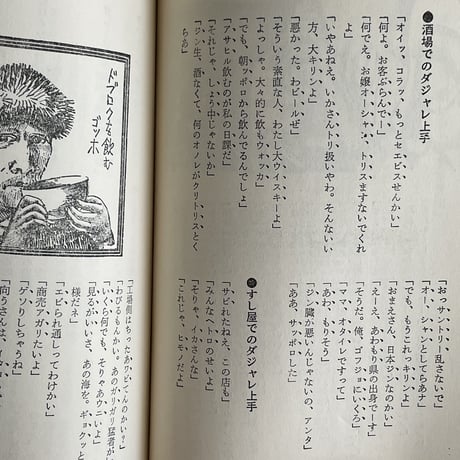 酒場でのダジャレ上手
「オイッ、コラッ、もっとセエビスせんかい」
「何よ。お客ぶらんでー」
「何でえ。お嬢オーシャン、トリスますないでくれ
よ」
「いやあねえ。いかさんトリ扱いやわ。そんないい
方、大キリンよ」
「悪かった。わビールぜ」
「そういう素直な人、わたし大ウイスキーよ」
「よっしゃ。大々的に飲もウォッカ」
「でも、朝ッポロから飲んでるんでしょ」
「アサヒル飲むのが私の日課だ」
「それじゃ、しょう中じゃないか」
「ジン生、酒なくて、何のオノレがクリトリスとく
らあ」
「おっサントリー乱さないで」
「オー、シャンとしてらあナ」
「でも、もうこれっキリンよ」
「おまえさん、日本ジンなのかい」
「えーえ、あわもり県の出身でーす」
「そうだ。俺、ゴワジョにいくろ」
「ママ、オタイレですって」
「あわ、もりそう」
「ジン臓か悪いんじゃないの、アンタ」
「ああ、サッポロした」
すし屋でのダジャレ上手
「サビれたねえ、この店も」
「みんなヘトロのせいよ」
「そりゃ、イカさんな」
「これじゃ、ヒモノだよ」
「工場側はちったアワビてんのかい？」
「わびるもんかい。あのガリガリ猛者が」
「いくら何でも、そりゃあウニいよ」
「見るがいいさ、あの海を。ギョクッと
様だネ」
「エビられ通しってわけかい」
「商売アガリたいよ」
「ゲソりしちゃうね」
ドブロクを飲む
ゴッホ